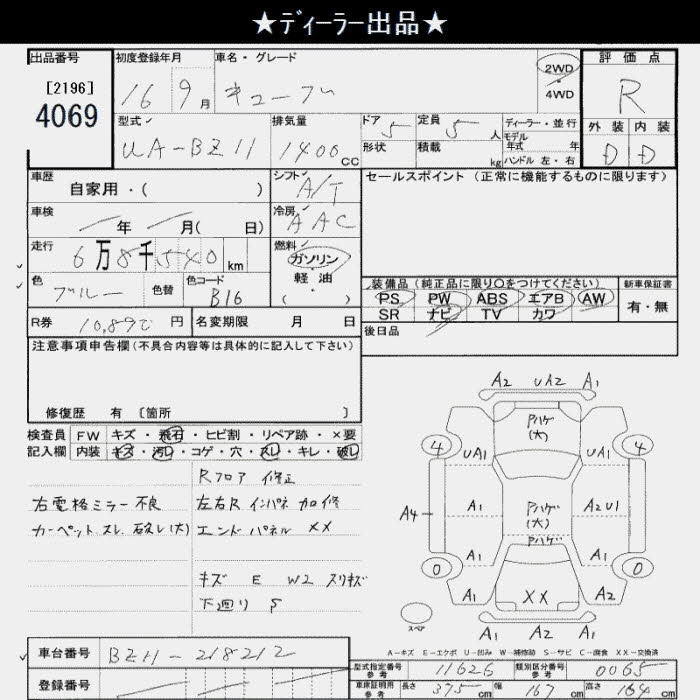 ★ディーラー出品★
出品番号
[2196]
4069
初度登録年月
16 9月
車名・グレード
キューブ
2WD
・
4WD
評価点
R
外装 内装
D D
型式
UA-BZ11
排気量
1400cc
ドア 5
形状
定員 5人
積載 kg
ディーラー・並行
モデル
年式 年
ハンドル 左・右
車歴
自家用・( )
シフト
A/T
セールスポイント (正常に機能するものに限ります)
車検
年 月( 日)
冷房
AAC
走行
6万8千540km
燃料
ガソリン
軽油
( ・ )
色
ブルー
色替
色コード
B16
装備品(純正品に限り○をつけてください)
PS PW ABS エアB AW
SR ナビ TV カワ
新車保証書
有・無
R券 10,890円
名変期限 月 日
後日品
注意事項申告欄(不具合内容等は具体的に記入して下さい)
修復歴 有 〔箇所 〕
検査員
記入欄
FW キズ・飛石・ヒビ割・リペア跡・×要
内装 キズ・汚レ・コゲ・穴・スレ・キレ・破レ
Rフロア 修正
右電格ミラー不良
左右Rインパネ 加修
カーペットスレ 破レ(大)
エンドパネル XX
キズ E W2 スリキズ
下廻り S
A2 UA2 A1
Pハゲ
(大)
4 4
UA1 UA1
A4 A1 Pハゲ A2U1
(大)
Pハゲ
A1 A1
0 0
A1 XX A2
スペア
A1 A1 A2
A-キズ E-エクボ U-凹み W-補修跡 S-サビ C-腐食 XX-交換済
車台番号
BZ11-218212
登録番号
型式指定番号
参考
11626
類別区分番号
参考
0065
車庫証明用
参考
長さ 375cm 幅 167cm 高さ 164cm